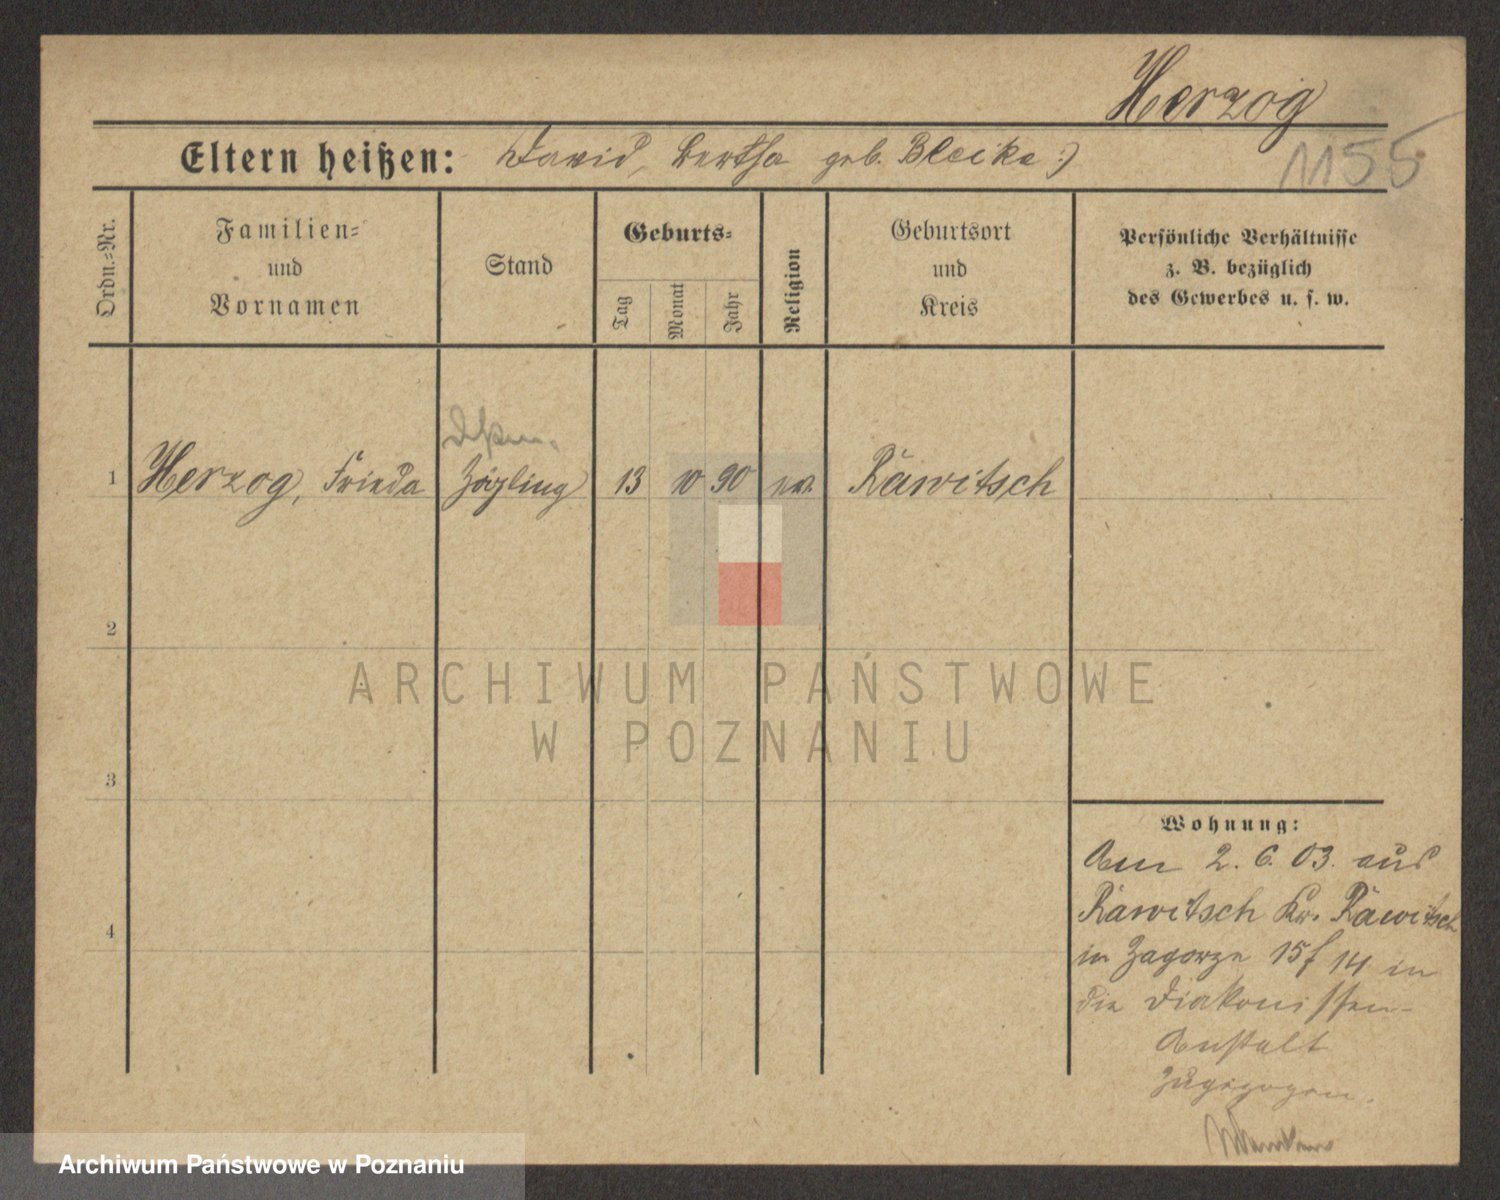 Herzog
1155
Eltern heißen: David, Bertha geb. Bleike :)
Ordn.-Nr.
Familien-
und
Vornamen
Stand
Geburts-
Tag
Monat
Jahr
Religion
Geburtsort
und
Kreis
Persönliche Verhältnisse
z. B. bezüglich
des Gewerbes u. s. w.
1 Herzog, Frieda Zögling 13 10 90 ev. Rawitsch
2
ARCHIWUM PAŃSTWOWE
W POZNANIU
3
Wohnung:
Am 2. 6. 03. aus
Rawitsch Kr. Rawitsch
4
in Zagorze 15/14 in
die Diakonissen-
Anstalt
zugezogen.
Archiwum Państwowe w Poznaniu